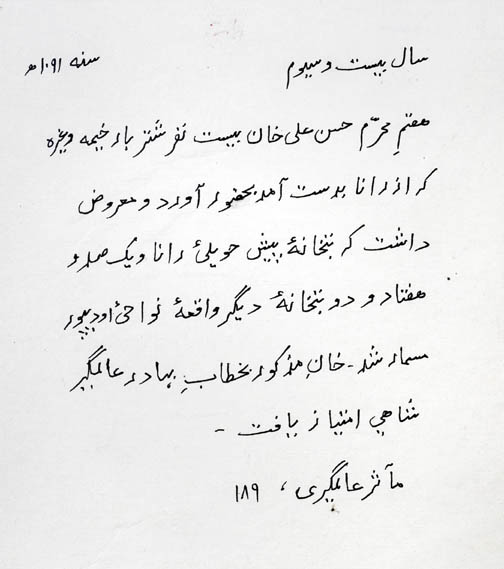 سال بیست و سیوم
سنه ۱۰۹۱ھ
هفتمِ محرّم حسن علی خان بیست نفر شتر بار خیمه وغیره
که از رانا بدست آمد بحضور آورد و معروض
داشت که بتخانهٔ پیش حویلیٔ رانا و یک صد و
هفتاد و دو بتخانهٔ دیگر واقعهٔ نواحیٔ اودیپور
مسمار شد۔ خانِ مذکور بخطابِ بهادر عالمگیر
شاهی امتیاز یافت ۔
مآثر عالمگیری، ۱۸۹